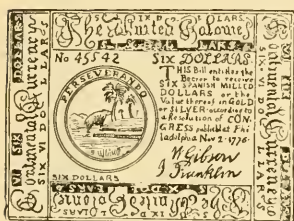 SIX DOLLARS
The United Colonies
SIX DOLLARS
Continental Currency
No 45542
SIX DOLLARS
THIS Bill entitles the
Bearer to receive
SIX SPANISH MILLED
DOLLARS or the
Value thereof in GOLD
or SILVER according to
a Resolution of CON-
GRESS published at Phi-
ladelphia Nov 2. 1776.
PERSEVERANDO
SIX DOLLARS
Continental Currency
The United Colonies
SIX DOLLARS